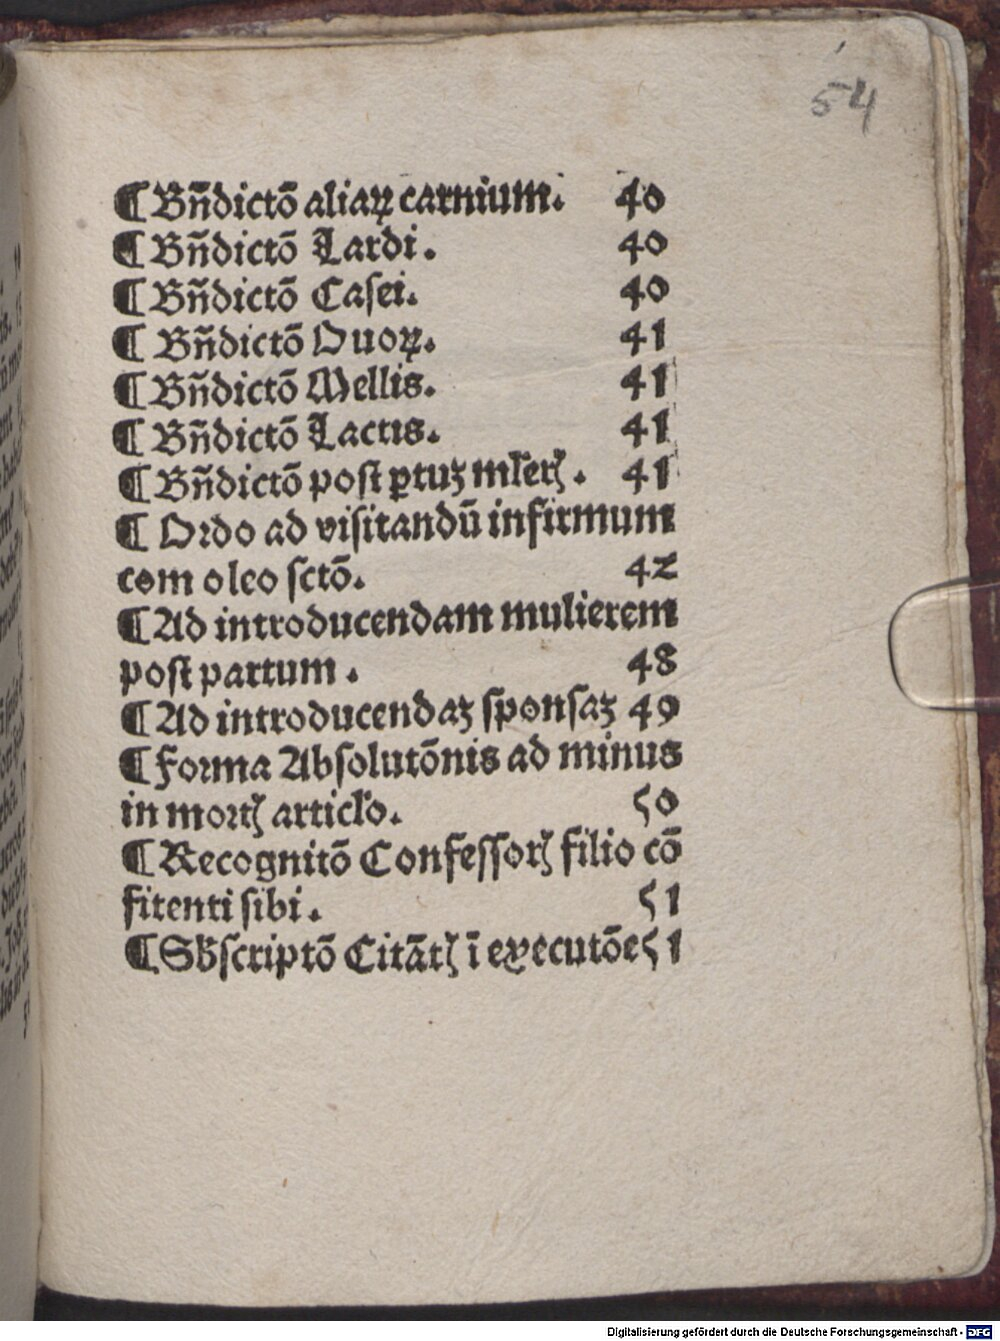 54
¶ Bn̄dictō aliaꝝ carnium. 40
¶ Bn̄dictō Lardi. 40
¶ Bn̄dictō Caſei. 40
¶ Bn̄dictō Ouoꝝ. 41
¶ Bn̄dictō Mellis. 41
¶ Bn̄dictō Lactis. 41
¶ Bn̄dictō poſt ꝑtuꝫ ml̓erꝭ. 41
¶ Ordo ad viſitandū infirmum
com oleo ſctō. 42
¶ Ad introducendam mulierem
poſt partum. 48
¶ Ad introducendaꝫ ſponſaꝫ 49
¶ Forma Abſolutōnis ad minus
in mortꝭ articl̓o. 50
¶ Recognitō Confeſſorꝭ filio cō
fitenti ſibi. 51
¶ Sb̓ſcriptō Citātꝭ ī executōe 51
Digitalisierung gefördert durch die Deutsche Forschungsgemeinschaft - DFG